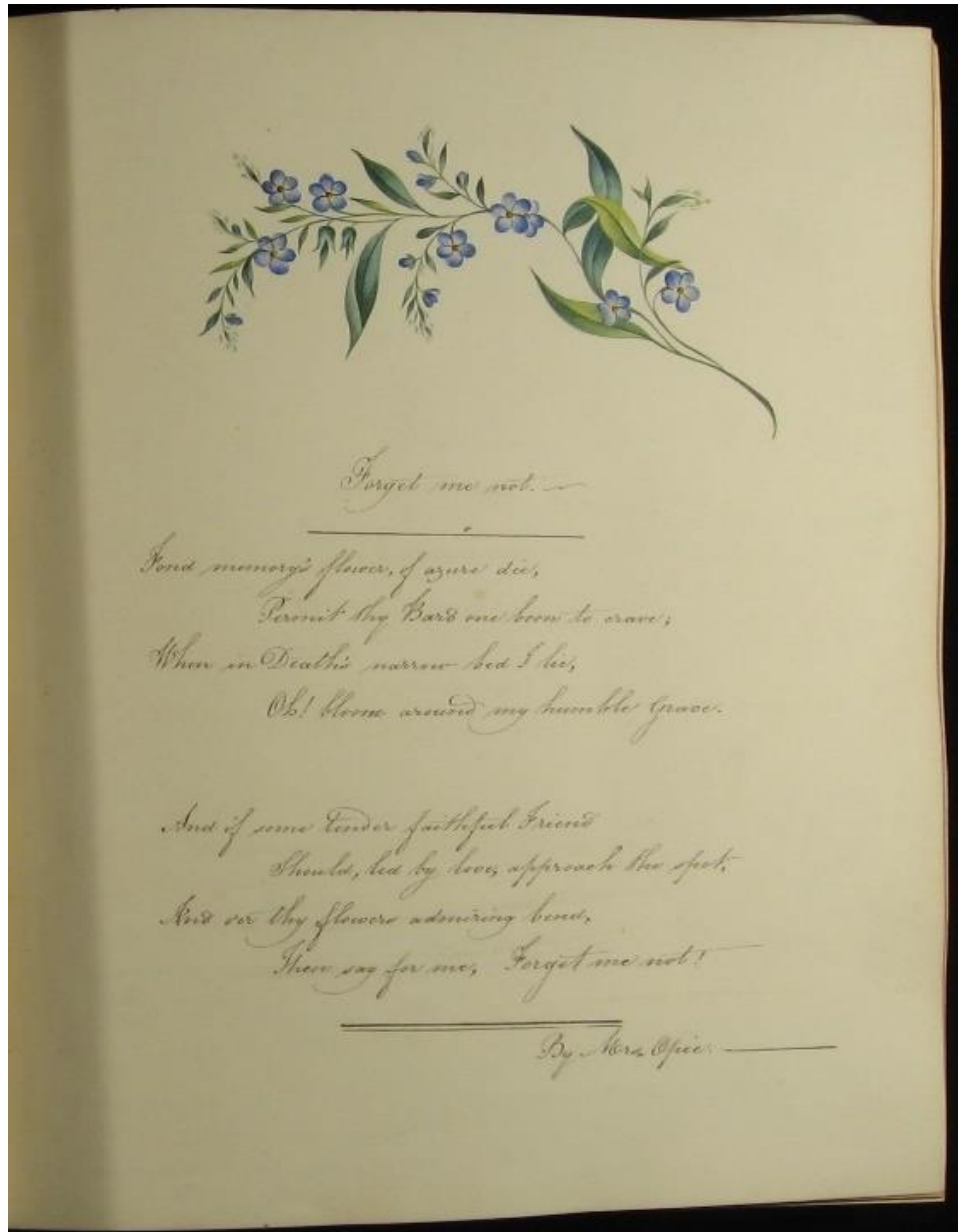 Forget me not.
Fond memory's flower, of azure die,
Permit thy Bard one boon to crave;
When in Death's narrow bed I lie,
Oh! bloom around my humble Grave.
And if some tender faithful Friend
Should, led by love, approach the spot,
And o'er thy flowers admiring bend,
Then say for me, Forget me not!
By Mrs. Opie.